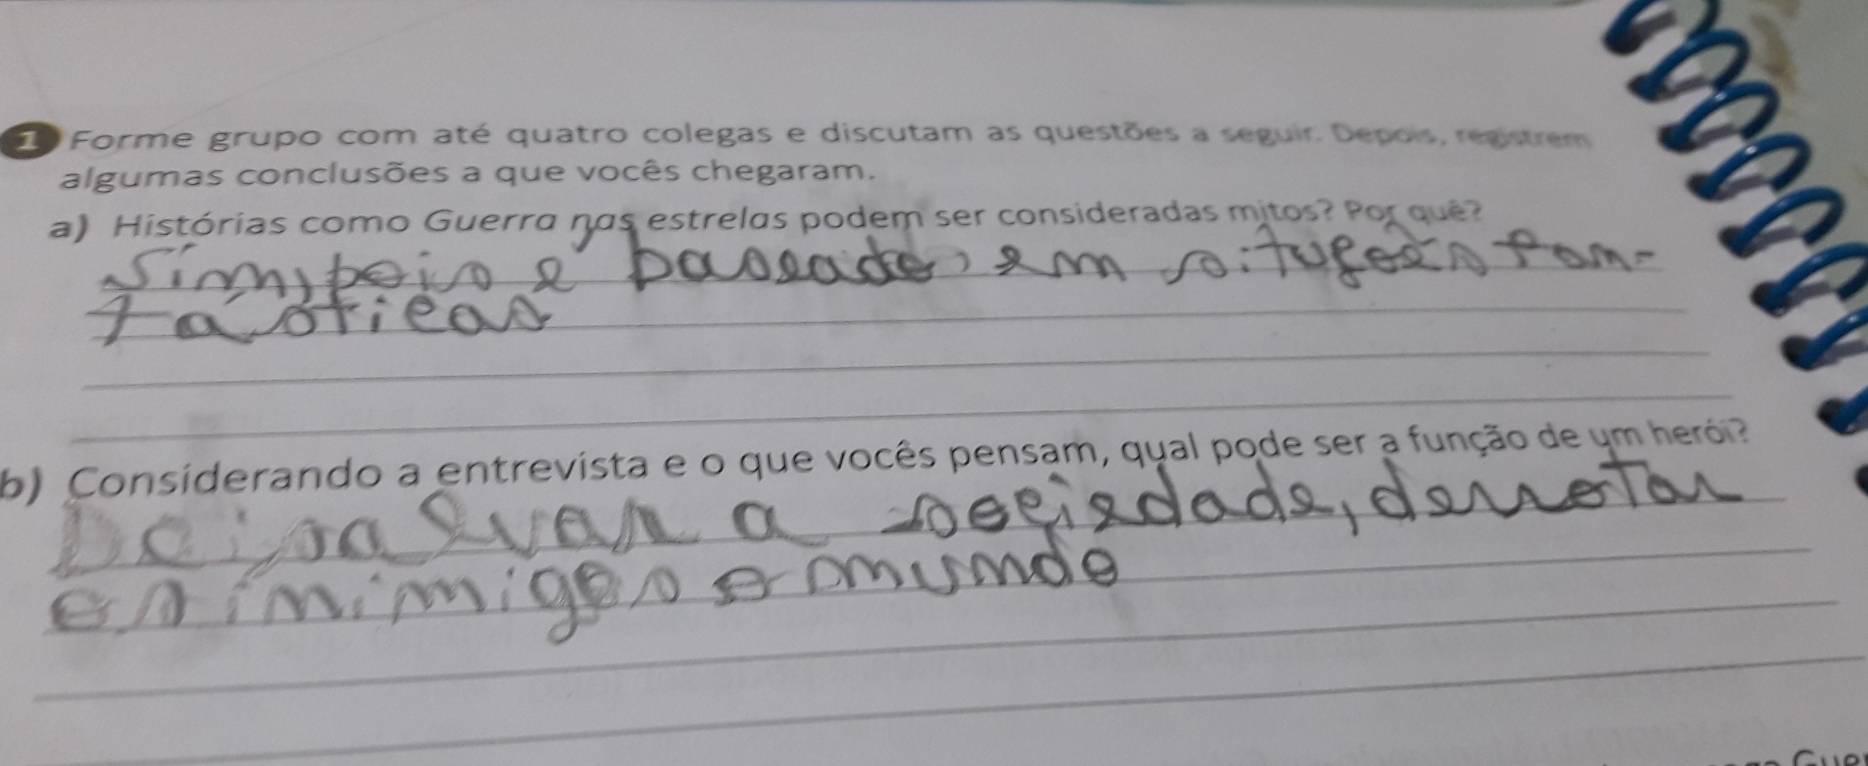 1 Forme grupo com até quatro colegas e discutam as questões a seguir. Depois, registrem
algumas conclusões a que vocês chegaram.
a) Histórias como Guerra nas estrelas podem ser consideradas mitos? Por quê?
Sim, pois é baseado, em situções fan-
tásticas
b) Considerando a entrevista e o que vocês pensam, qual pode ser a função de um herói?
a sociedade, derrotar
os inimigos mundo